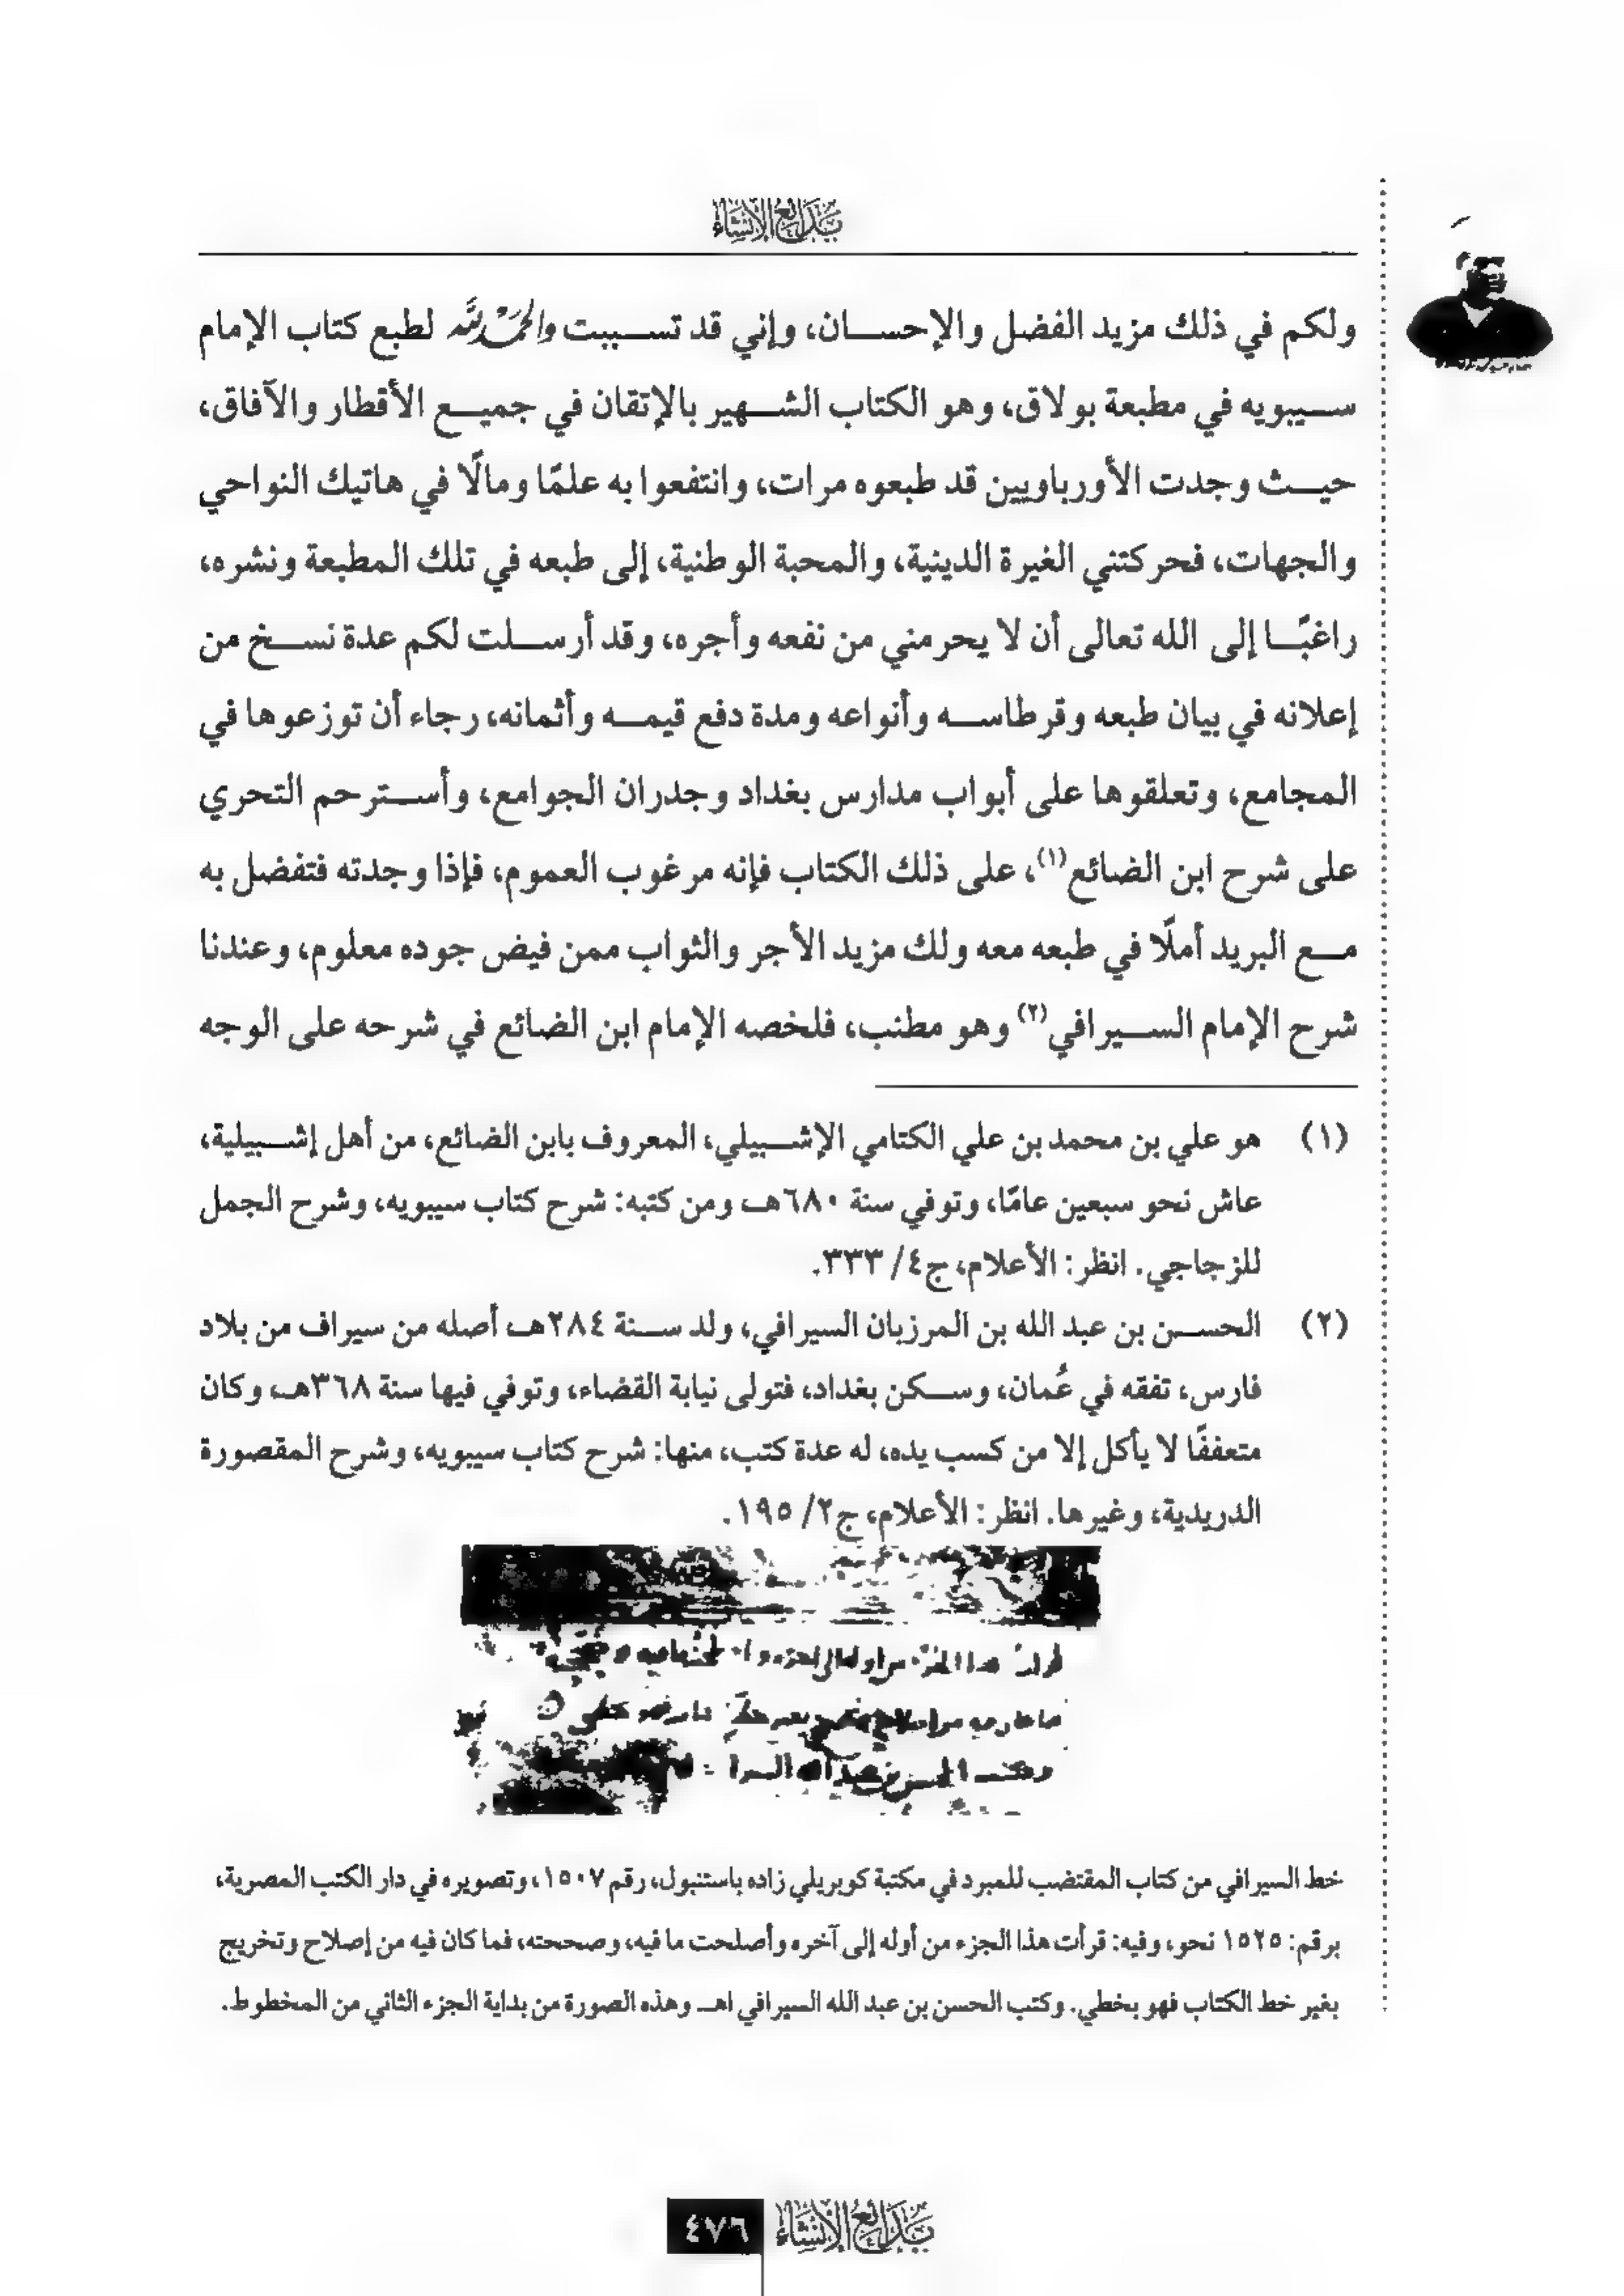 بدائع الإنشاء
ولكم في ذلك مزيد الفضل والإحسان، وإني قد تسببت والحمد لله لطبع كتاب الإمام
سيبويه في مطبعة بولاق، وهو الكتاب الشهير بالإتقان في جميع الأقطار والآفاق،
حيث وجدت الأورباويين قد طبعوه مرات، وانتفعوا به علمًا ومالًا في هاتيك النواحي
والجهات، فحركتني الغيرة الدينية، والمحبة الوطنية، إلى طبعه في تلك المطبعة ونشره،
راغبًا إلى الله تعالى أن لا يحرمني من نفعه وأجره، وقد أرسلت لكم عدة نسخ من
إعلانه في بيان طبعه وقرطاسه وأنواعه ومدة دفع قيمه وأثمانه، رجاء أن توزعوها في
المجامع، وتعلقوها على أبواب مدارس بغداد وجدران الجوامع، وأسترحم التحري
على شرح ابن الضائع(١)، على ذلك الكتاب فإنه مرغوب العموم، فإذا وجدته فتفضل به
مع البريد أملًا في طبعه معه ولك مزيد الأجر والثواب ممن فيض جوده معلوم، وعندنا
شرح الإمام السيرافي(٢) وهو مطنب، فلخصه الإمام ابن الضائع في شرحه على الوجه
(١) هو علي بن محمد بن علي الكتامي الإشبيلي، المعروف بابن الضائع، من أهل إشبيلية،
عاش نحو سبعين عامًا، وتوفي سنة ٦٨٠هـ ومن كتبه: شرح كتاب سيبويه، وشرح الجمل
للزجاجي. انظر: الأعلام، ج٤/ ٣٣٣.
(٢) الحسن بن عبد الله بن المرزبان السيرافي، ولد سنة ٢٨٤هـ أصله من سيراف من بلاد
فارس، تفقه في عُمان، وسكن بغداد، فتولى نيابة القضاء، وتوفي فيها سنة ٣٦٨هـ، وكان
متعففًا لا يأكل إلا من كسب يده، له عدة كتب، منها: شرح كتاب سيبويه، وشرح المقصورة
الدريدية، وغيرها. انظر: الأعلام، ج٢/ ١٩٥.
خط السيرافي من كتاب المقتضب للمبرد في مكتبة كوبريلي زاده باستنبول، رقم ١٥٠٧، وتصويره في دار الكتب المصرية،
برقم: ١٥٢٥ نحو، وفيه: قرأت هذا الجزء من أوله إلى آخره وأصلحت ما فيه، وصححته، فما كان فيه من إصلاح وتخريج
بغير خط الكتاب فهو بخطي. وكتب الحسن بن عبد الله السيرافي اهـ وهذه الصورة من بداية الجزء الثاني من المخطوط.
بدائع الإنشاء ٤٧٦